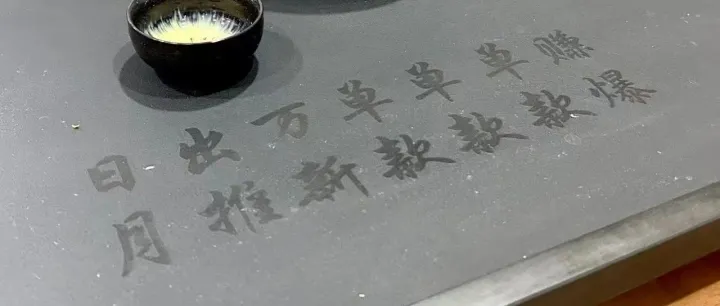 日出万单单单赚
月推新款款款爆